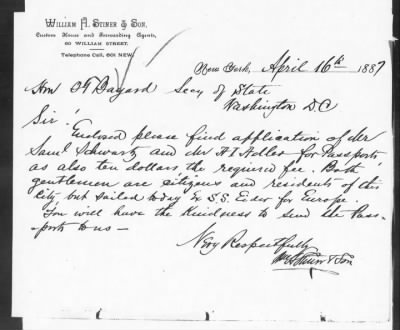 WILLIAM A. STINER & SON,
Custom House and Forwarding Agents,
60 WILLIAM STREET.
Telephone Call, 601 NEW.
New York, April 16th 1887
Hon T F Bayard Secy of State
Washington DC
Sir!
Enclosed please find application of
Saml Schwartz and H I Adler for Passports
as also ten dollars, the required fee. Both
gentlemen are citizens and residents of this
city but sailed today Ex S.S. Eider for Europe.
You will have the Kindness to send the Pass-
ports to us —
Very Respectfully
Wm A Stiner & Son